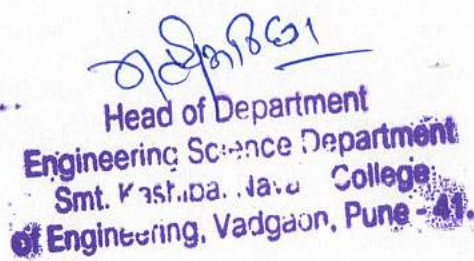 Head of Department
Engineering Science Department
Smt. College
of Engineering, Vadgaon, Pune - 41.